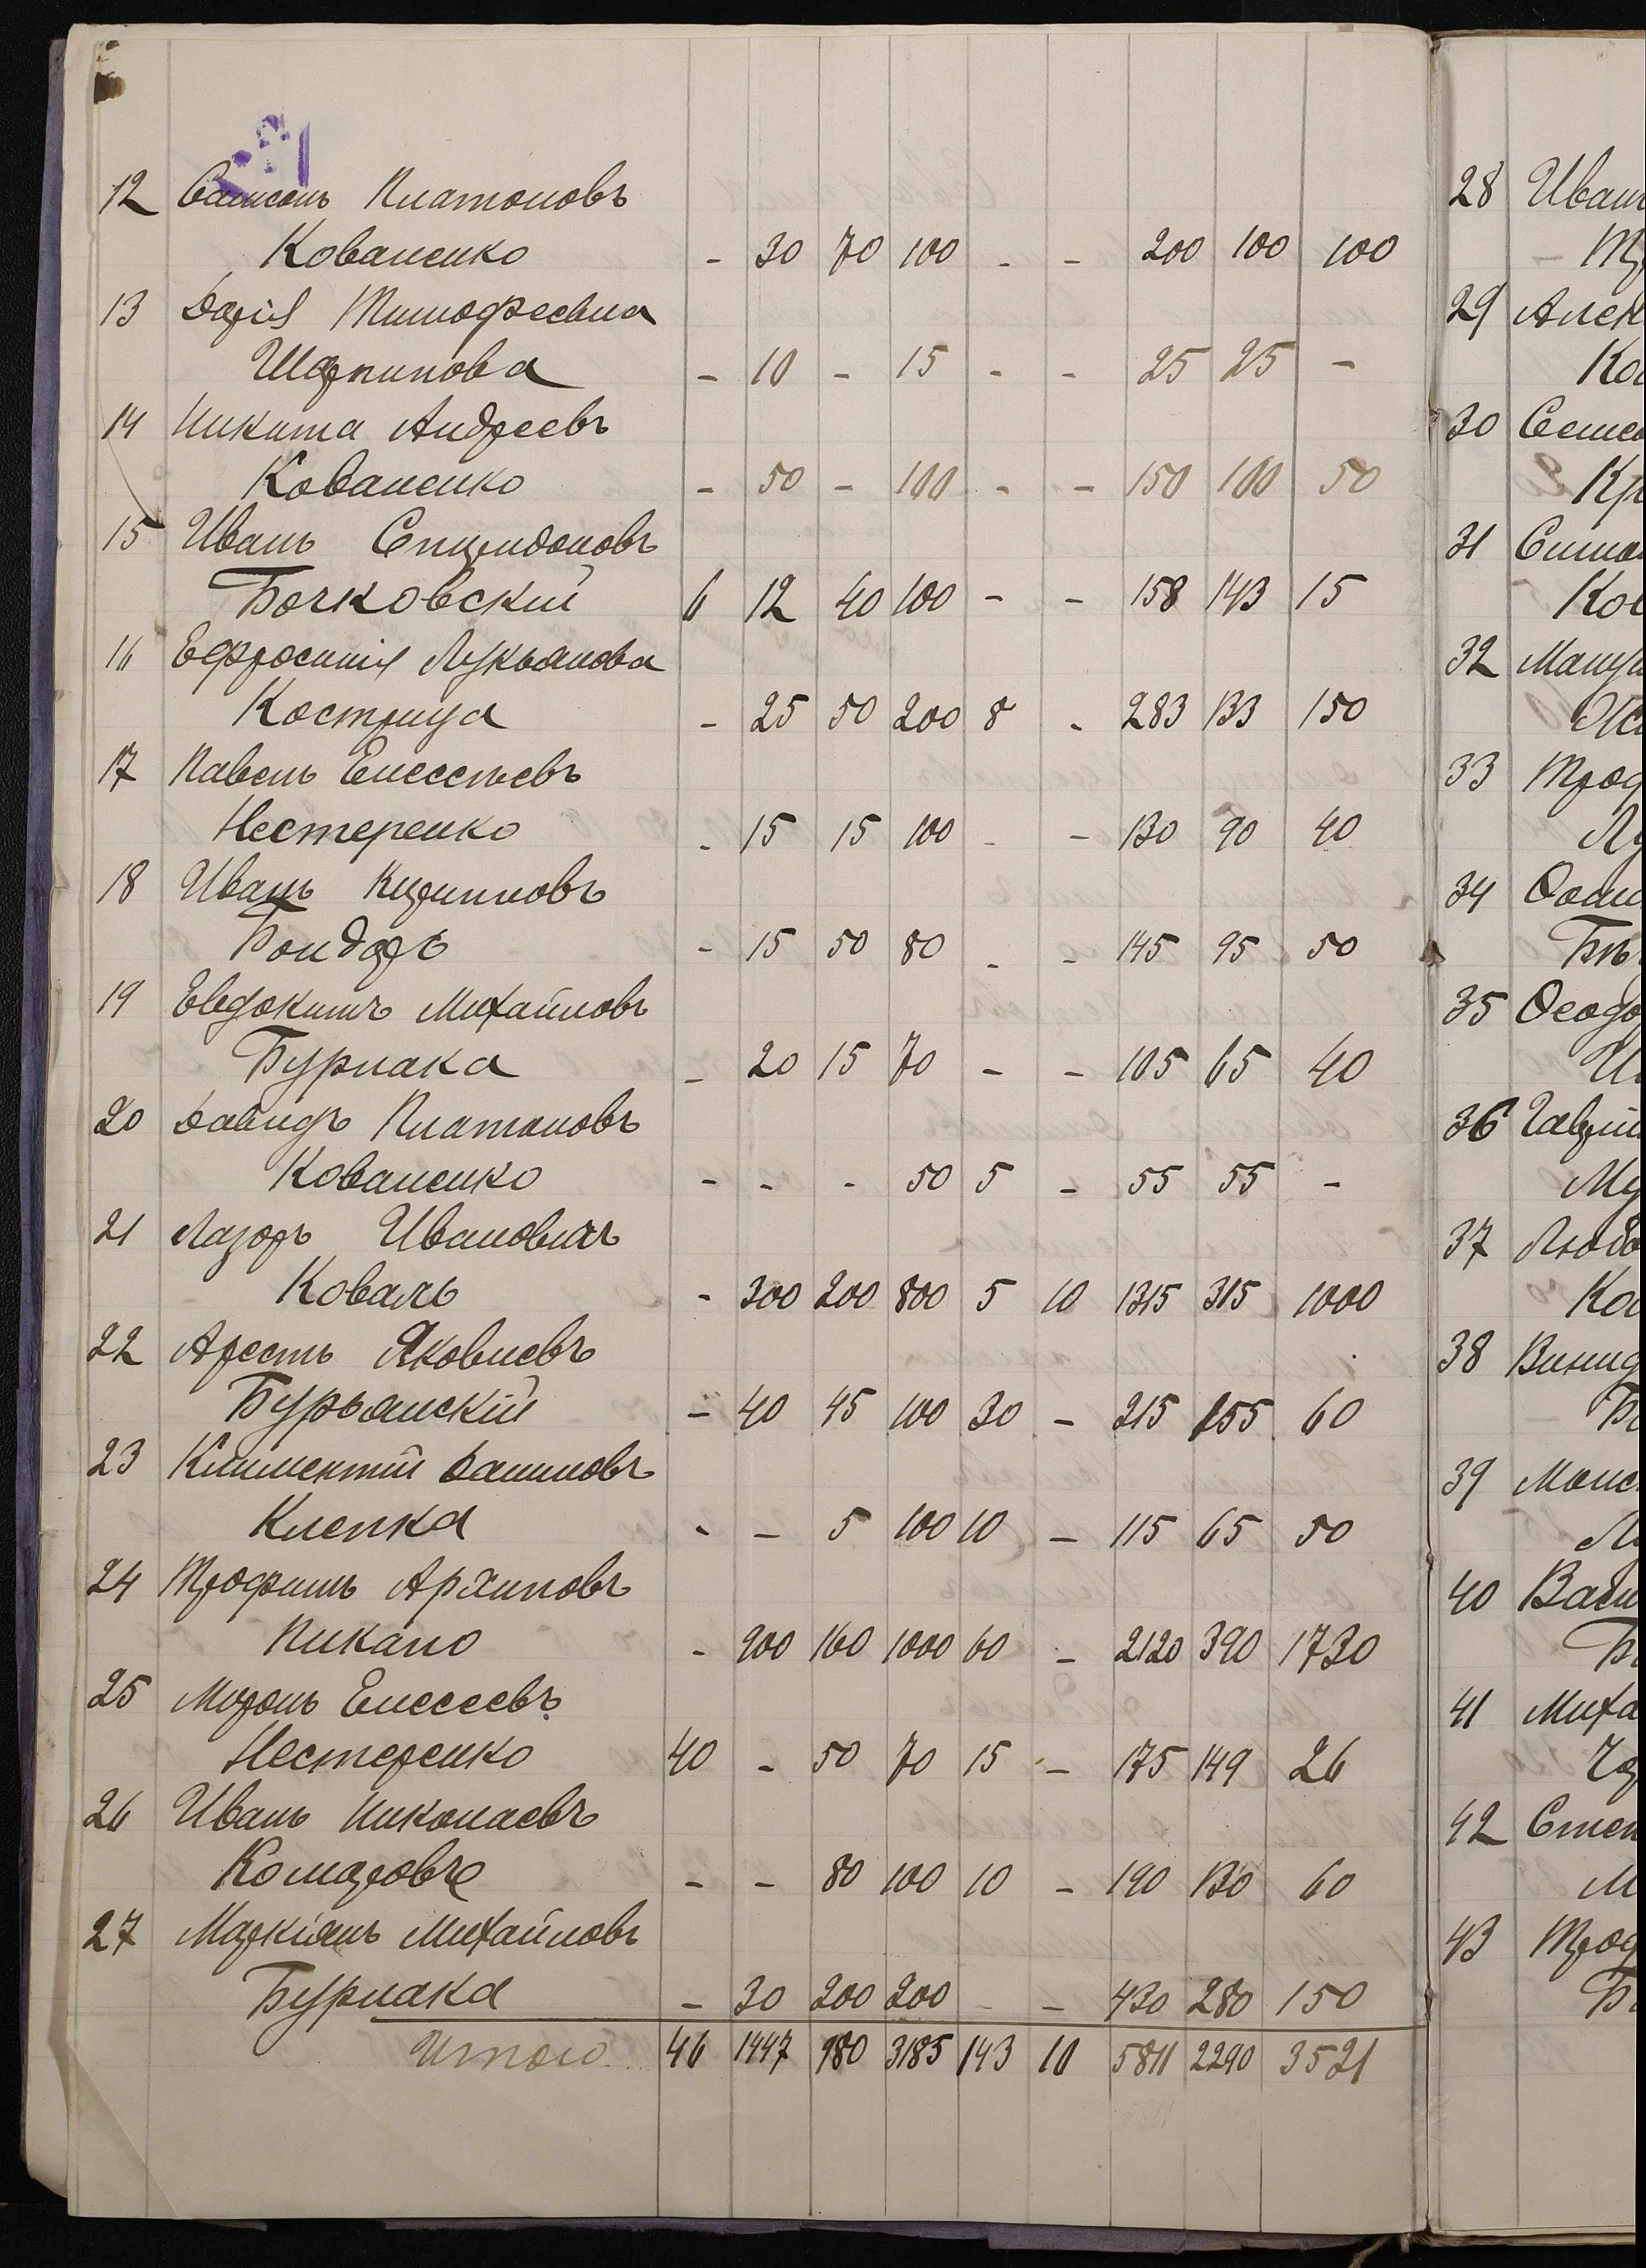 12 Самсонъ Платоновъ
Коваленко - 30 70 100 - - 200 100 100
13 Дарія Тимофеевна
Шарпинова - 10 - 15 - - 25 25 -
14 Никита Андреевъ
Коваленко - 50 - 100 - - 150 100 50
15 Иванъ Спиридоновъ
Бочковскій 6 12 40 100 - - 158 143 15
16 Ефросинія Лукьянова
Кострица - 25 50 200 8 - 283 133 150
17 Павелъ Елесеевъ
Нестеренко - 15 15 100 - - 130 90 40
18 Иванъ Кириловъ
Бондарь - 15 50 80 - - 145 95 50
19 Евдокимъ Михайловъ
Бурлака - 20 15 70 - - 105 65 40
20 Давидъ Платоновъ
Коваленко - - - 50 5 - 55 55 -
21 Лазарь Ивановичъ
Коваль - 300 200 800 5 10 1315 315 1000
22 Арестъ Яковлевъ
Бурьянскій - 40 45 100 30 - 215 155 60
23 Климентій Даниловъ
Клепка - - 5 100 10 - 115 65 50
24 Трофимъ Архиповъ
Пикало - 900 160 1000 60 - 2120 390 1730
25 Миронъ Елесеевъ
Нестеренко 40 - 50 70 15 - 175 149 26
26 Иванъ Николаевъ
Комаровъ - - 80 100 10 - 190 130 60
27 Маркіянъ Михайловъ
Бурлака - 30 200 200 - - 430 280 150
Итого 46 1447 980 3185 143 10 5811 2290 3521
28 Иван
29 Алек
Ко
30 Семе
Кр
31 Симо
Ков
32
33 Троф
34
35 Феодо
36 Гаври
37 Любо
Ко
38
39 Моис
40 Васи
41 Миха
42 Степ
43 Троф